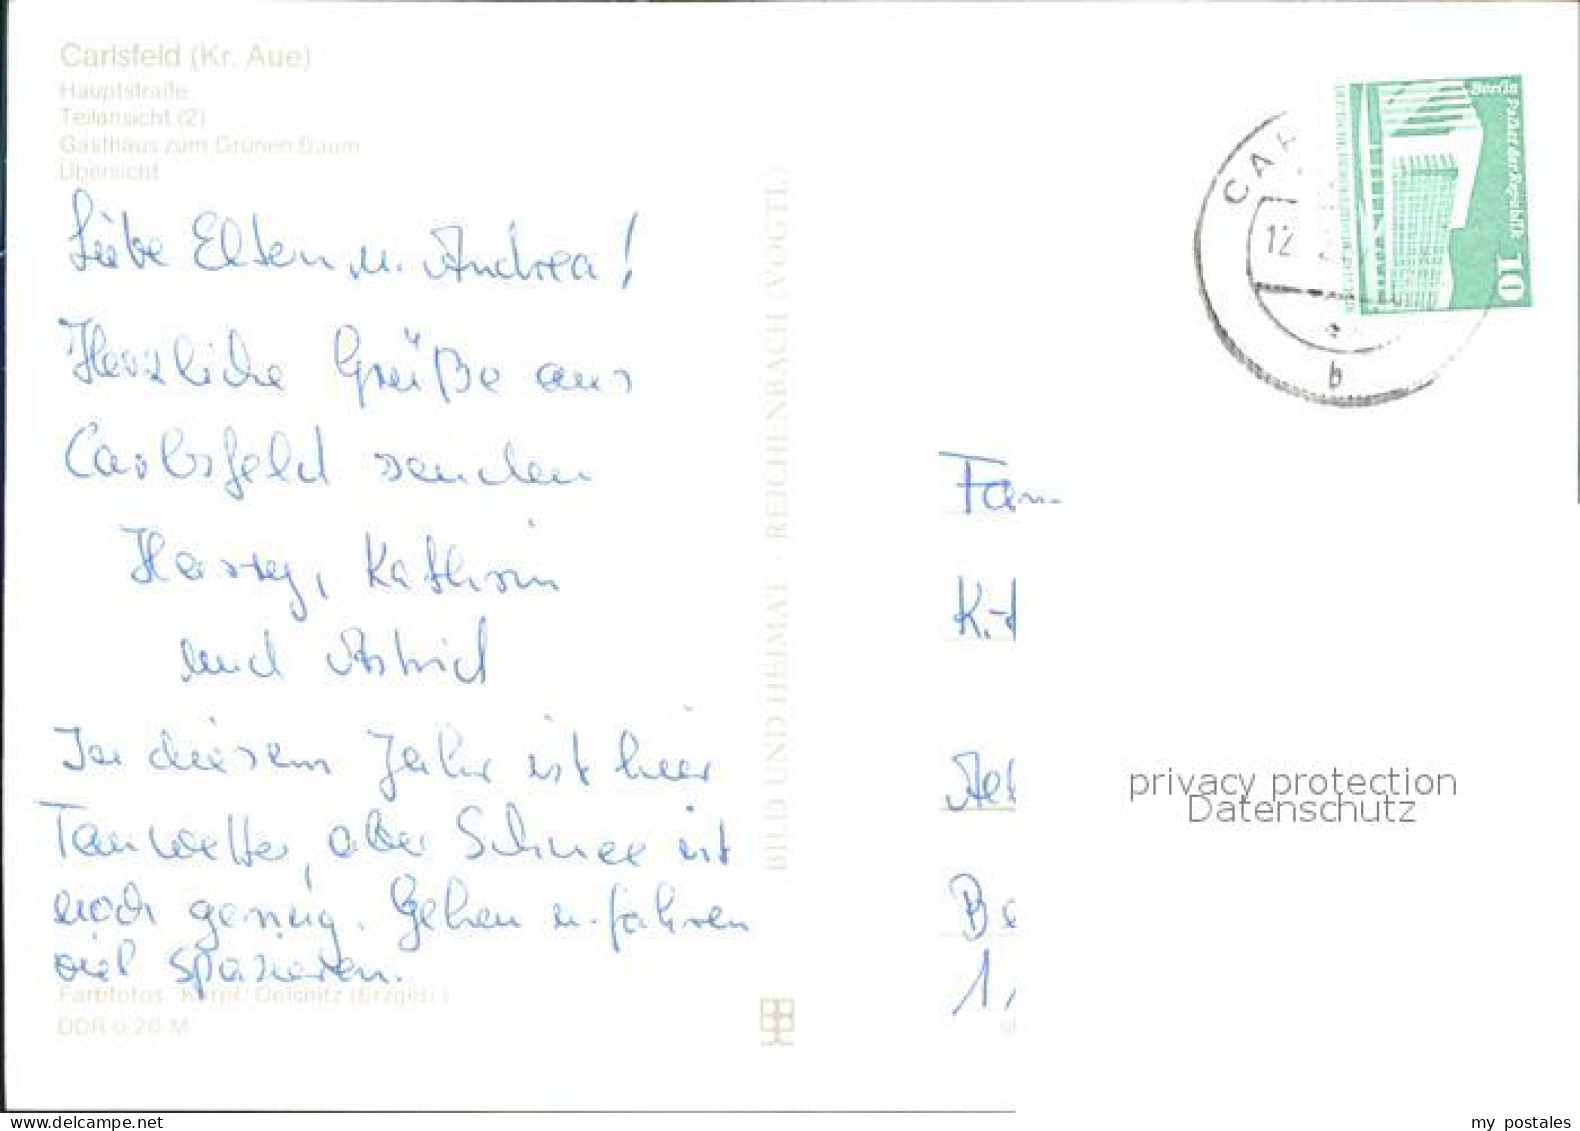 Carlsfeld (Kr. Aue)
Hauptstraße
Teilansicht (2)
Gasthaus zum Grünen Baum
Übersicht
Liebe Eltern u. Andrea!
Herzliche Grüße aus
Carlsfeld senden
Harry, Kathrin
und Astrid
In diesem Jahr ist hier
Tauwetter, aber Schnee ist
noch genüg. Gehen u. fahren
viel spazieren.
Farbfotos: Karpf, Oelsnitz (Erzgeb.)
DDR 0.20 M
BILD UND HEIMAT · REICHENBACH (VOGTL)
CAR
12
b
Berlin Palast der Republik
10
Fam.
K.-
Be
1,
privacy protection
Datenschutz
delcampe.net
my postales